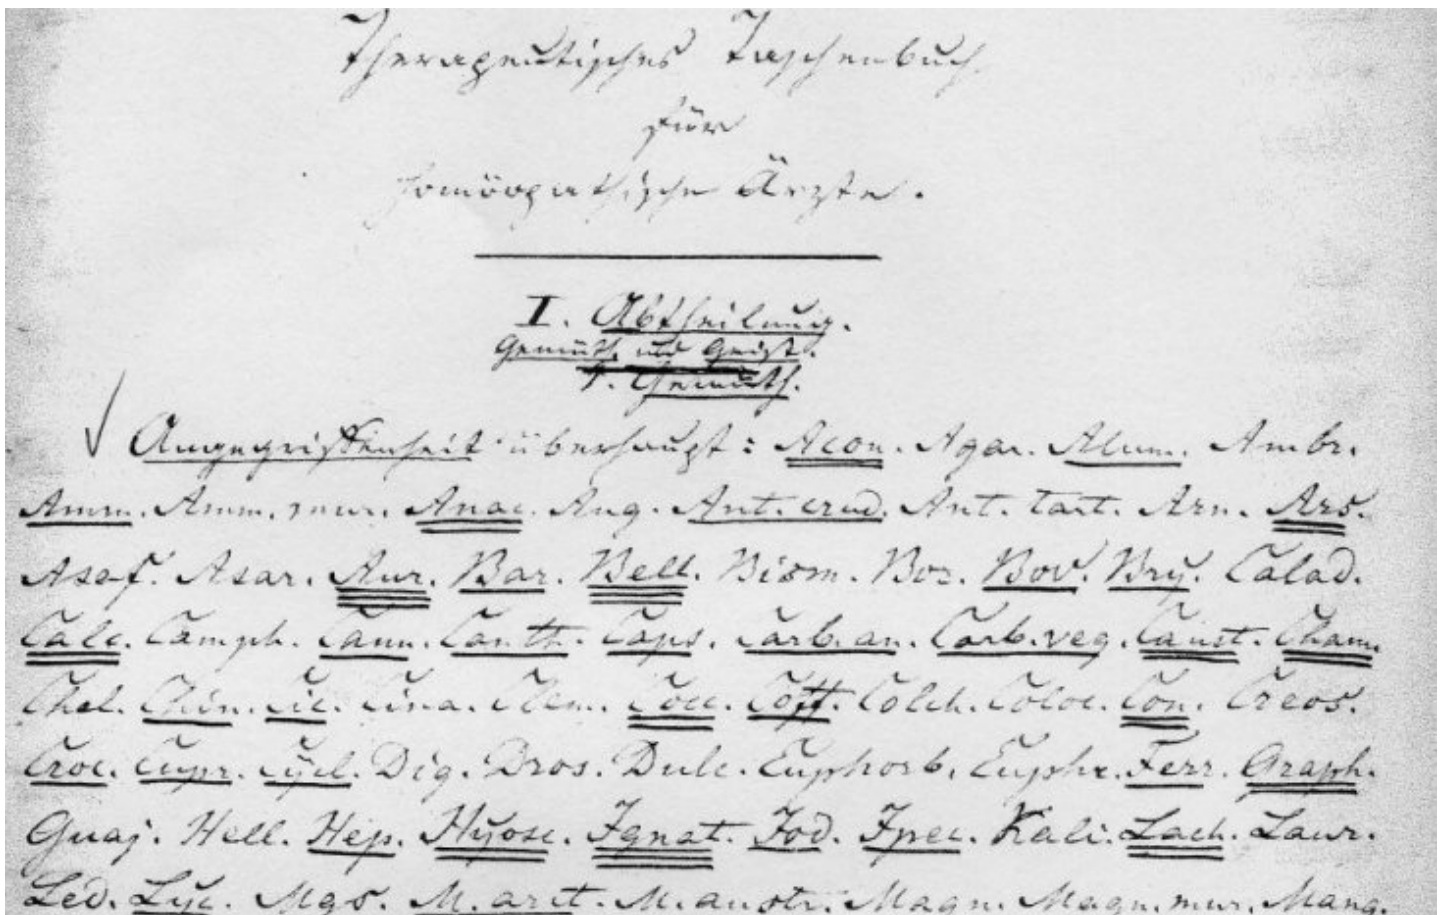 Therapeutisches Taschenbuch
für
homöopathische Ärzte.
I. Abtheilung.
Gemüth und Geist.
1. Gemüth.
Angegriffenheit überhaupt: Acon. Agar. Alum. Ambr.
Amm. Amm. mur. Anac. Ang. Ant. crud. Ant. tart. Arn. Ars.
Asaf. Asar. Aur. Bar. Bell. Bism. Bor. Bov. Bry. Calad.
Calc. Camph. Cann. Canth. Caps. Carb. an. Carb. veg. Caust. Cham.
Chel. Chin. Cic. Cina. Clem. Cocc. Coff. Colch. Coloc. Con. Creos.
Croc. Cupr. Cycl. Dig. Dros. Dulc. Euphorb. Euphr. Ferr. Graph.
Guaj. Hell. Hep. Hyosc. Ignat. Jod. Ipec. Kali. Lach. Laur.
Led. Lyc. Mgs. M. arct. M. austr. Magn. Magn. mur. Mang.